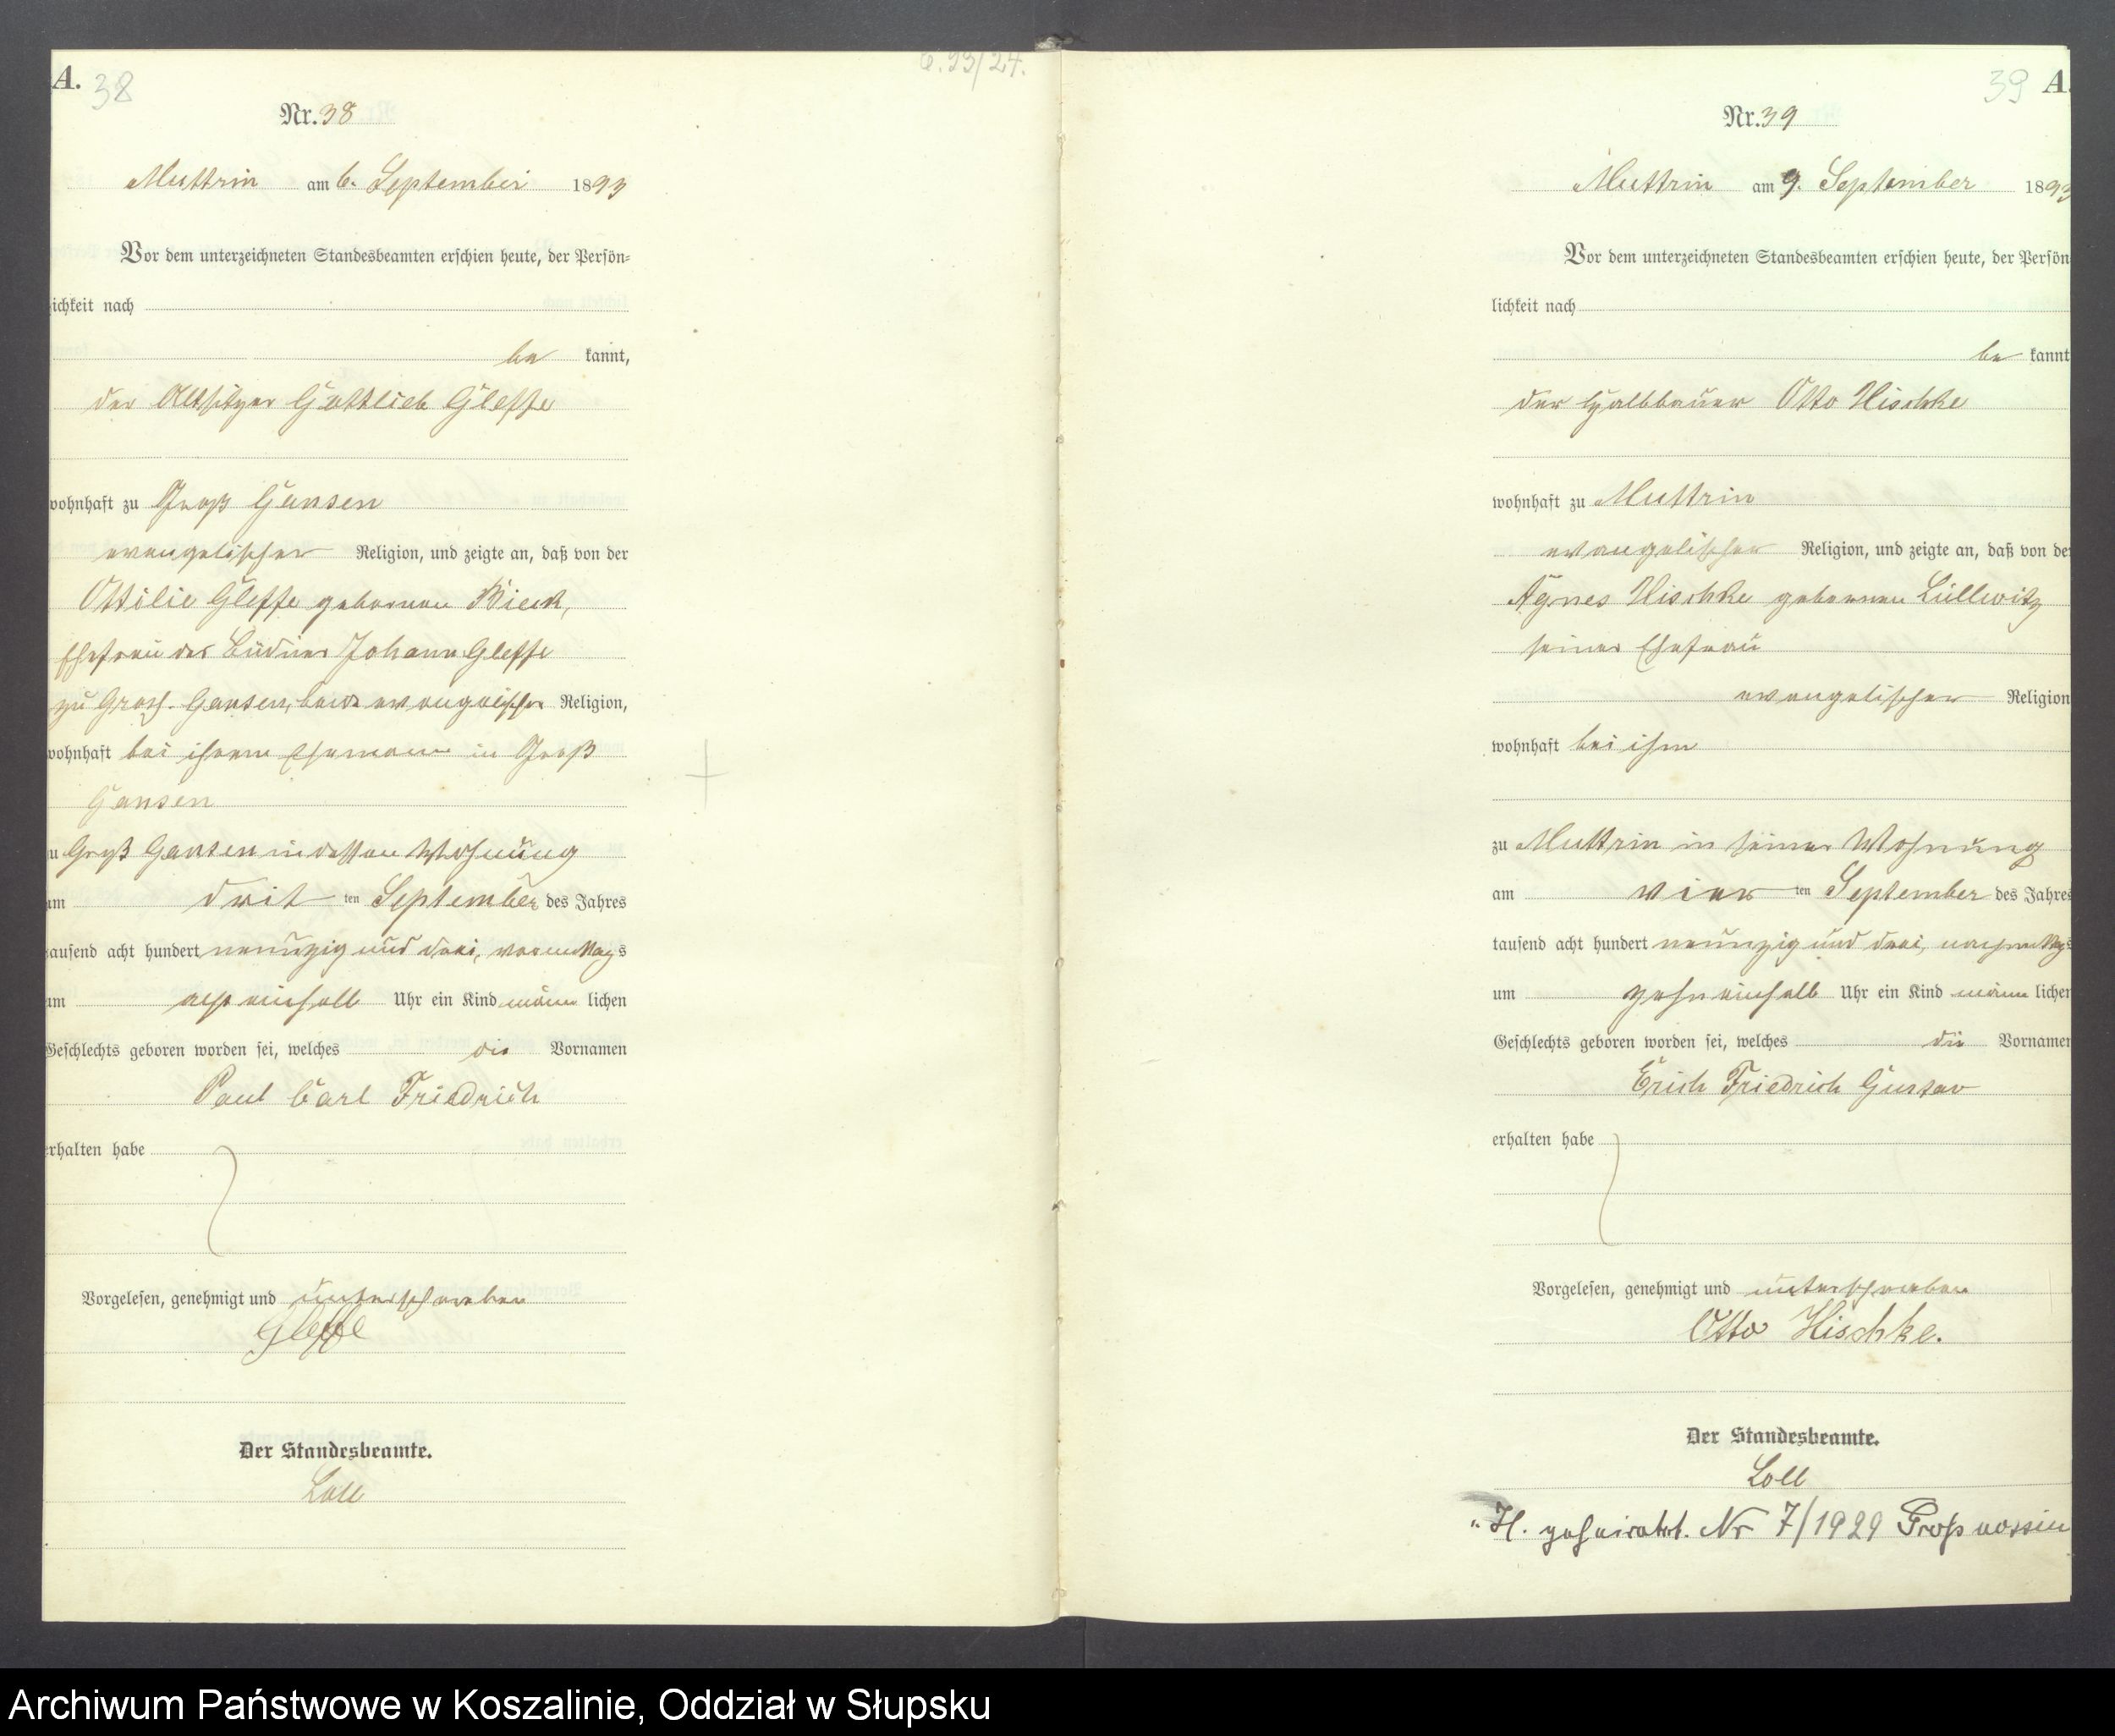 6.93/24.
A. 38
Nr. 38
Muttrin am 6. September 1893
Vor dem unterzeichneten Standesbeamten erschien heute, der Persön-
lichkeit nach
be kannt,
der Altsitzer Gottlieb Gleffe
wohnhaft zu Groß Gansen
evangelischer Religion, und zeigte an, daß von der
Ottilie Gleffe geborenen Bieck,
Ehefrau des Büdner Johann Gleffe
zu Groß-Gansen, beide evangelischer Religion,
wohnhaft bei ihrem Ehemann in Groß
Gansen
zu Groß Gansen in dessen Wohnung
am dritten September des Jahres
tausend acht hundert neunzig und drei, vormittags
um acht einhalb Uhr ein Kind männlichen
Geschlechts geboren worden sei, welches die Vornamen
Paul Carl Friedrich
erhalten habe
Vorgelesen, genehmigt und unterschrieben
Gleffe
Der Standesbeamte.
Loll
39 A.
Nr. 39
Muttrin am 9. September 1893
Vor dem unterzeichneten Standesbeamten erschien heute, der Persön
lichkeit nach
be kannt
der Halbbauer Otto Hischke
wohnhaft zu Muttrin
evangelischer Religion, und zeigte an, daß von der
Agnes Hischke geborenen Lüllwitz
seiner Ehefrau
evangelischer Religion
wohnhaft bei ihm
zu Muttrin in seiner Wohnung
am vierten September des Jahres
tausend acht hundert neunzig und drei, nachmittags
um zehn einhalb Uhr ein Kind männlichen
Geschlechts geboren worden sei, welches die Vornamen
Erich Friedrich Gustav
erhalten habe
Vorgelesen, genehmigt und unterschrieben
Otto Hischke.
Der Standesbeamte.
Loll
"H. geheiratet. Nr 7/1929 Groß nossin
Archiwum Państwowe w Koszalinie, Oddział w Słupsku